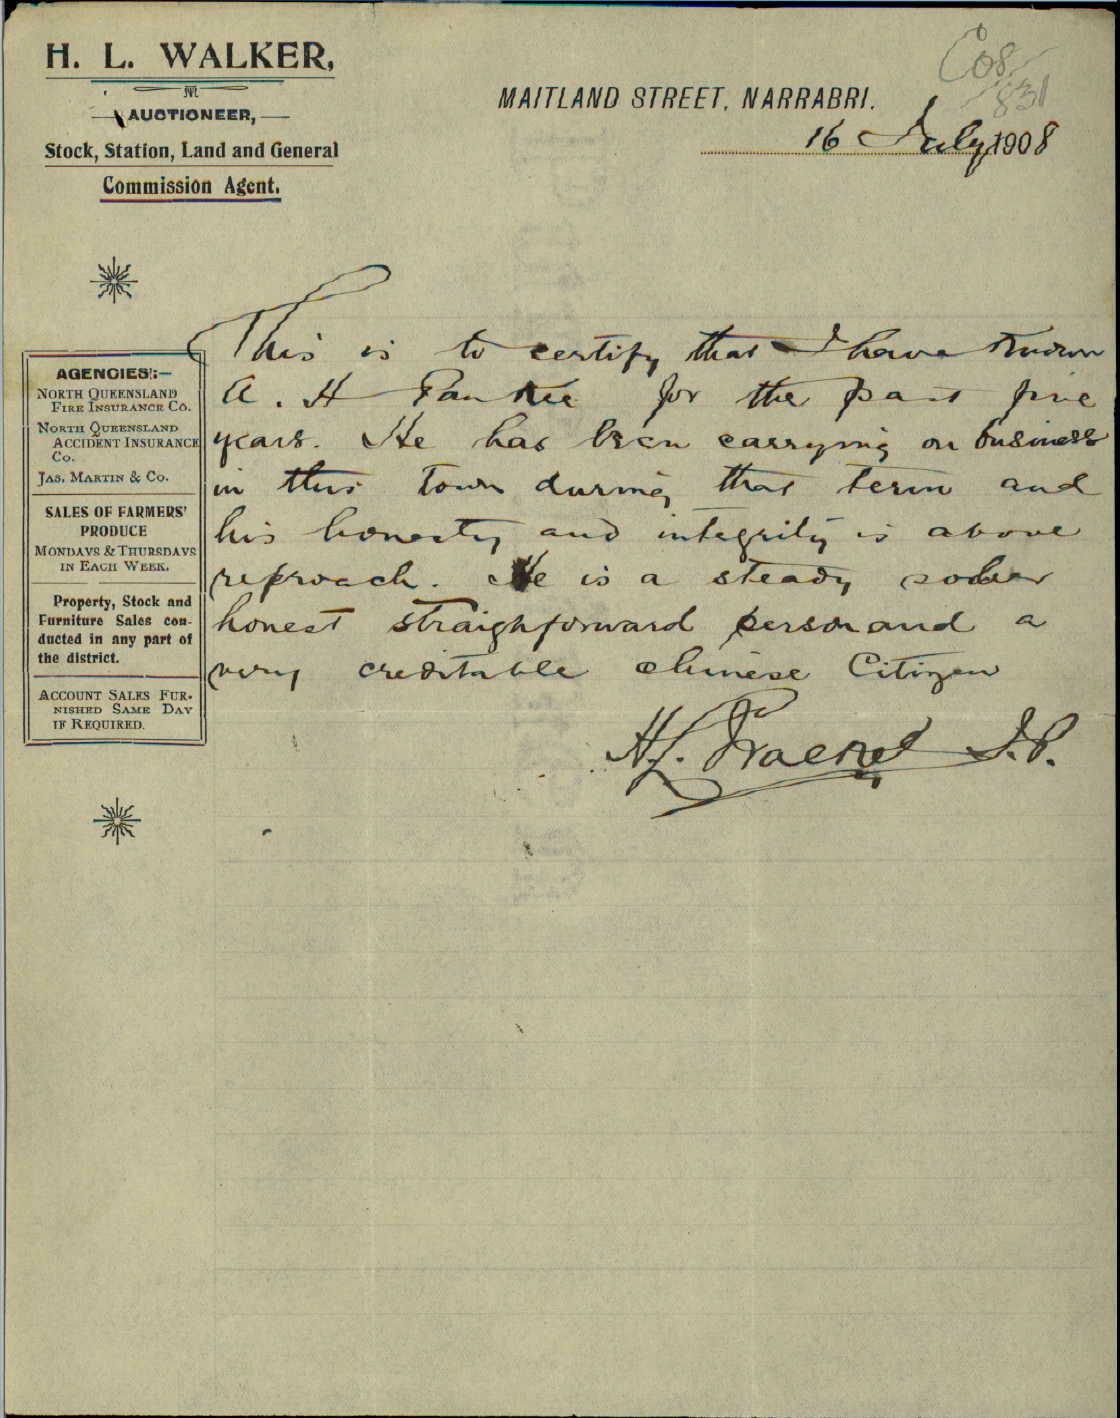 H. L. WALKER,
AUCTIONEER,
Stock, Station, Land and General
Commission Agent.
C08/831
MAITLAND STREET, NARRABRI.
16 July 1908
AGENCIES:—
NORTH QUEENSLAND
FIRE INSURANCE CO.
NORTH QUEENSLAND
ACCIDENT INSURANCE
CO.
JAS. MARTIN & CO.
SALES OF FARMERS'
PRODUCE
MONDAYS & THURSDAYS
IN EACH WEEK.
Property, Stock and
Furniture Sales con-
ducted in any part of
the district.
ACCOUNT SALES FUR-
NISHED SAME DAY
IF REQUIRED.
This is to certify that I have known
A. H Pan Kee for the past five
years. He has been carrying on business
in this town during that term and
his honesty and integrity is above
reproach. He is a steady sober
honest straighforward person and a
very creditable chinese Citizen
H.L. J.P.